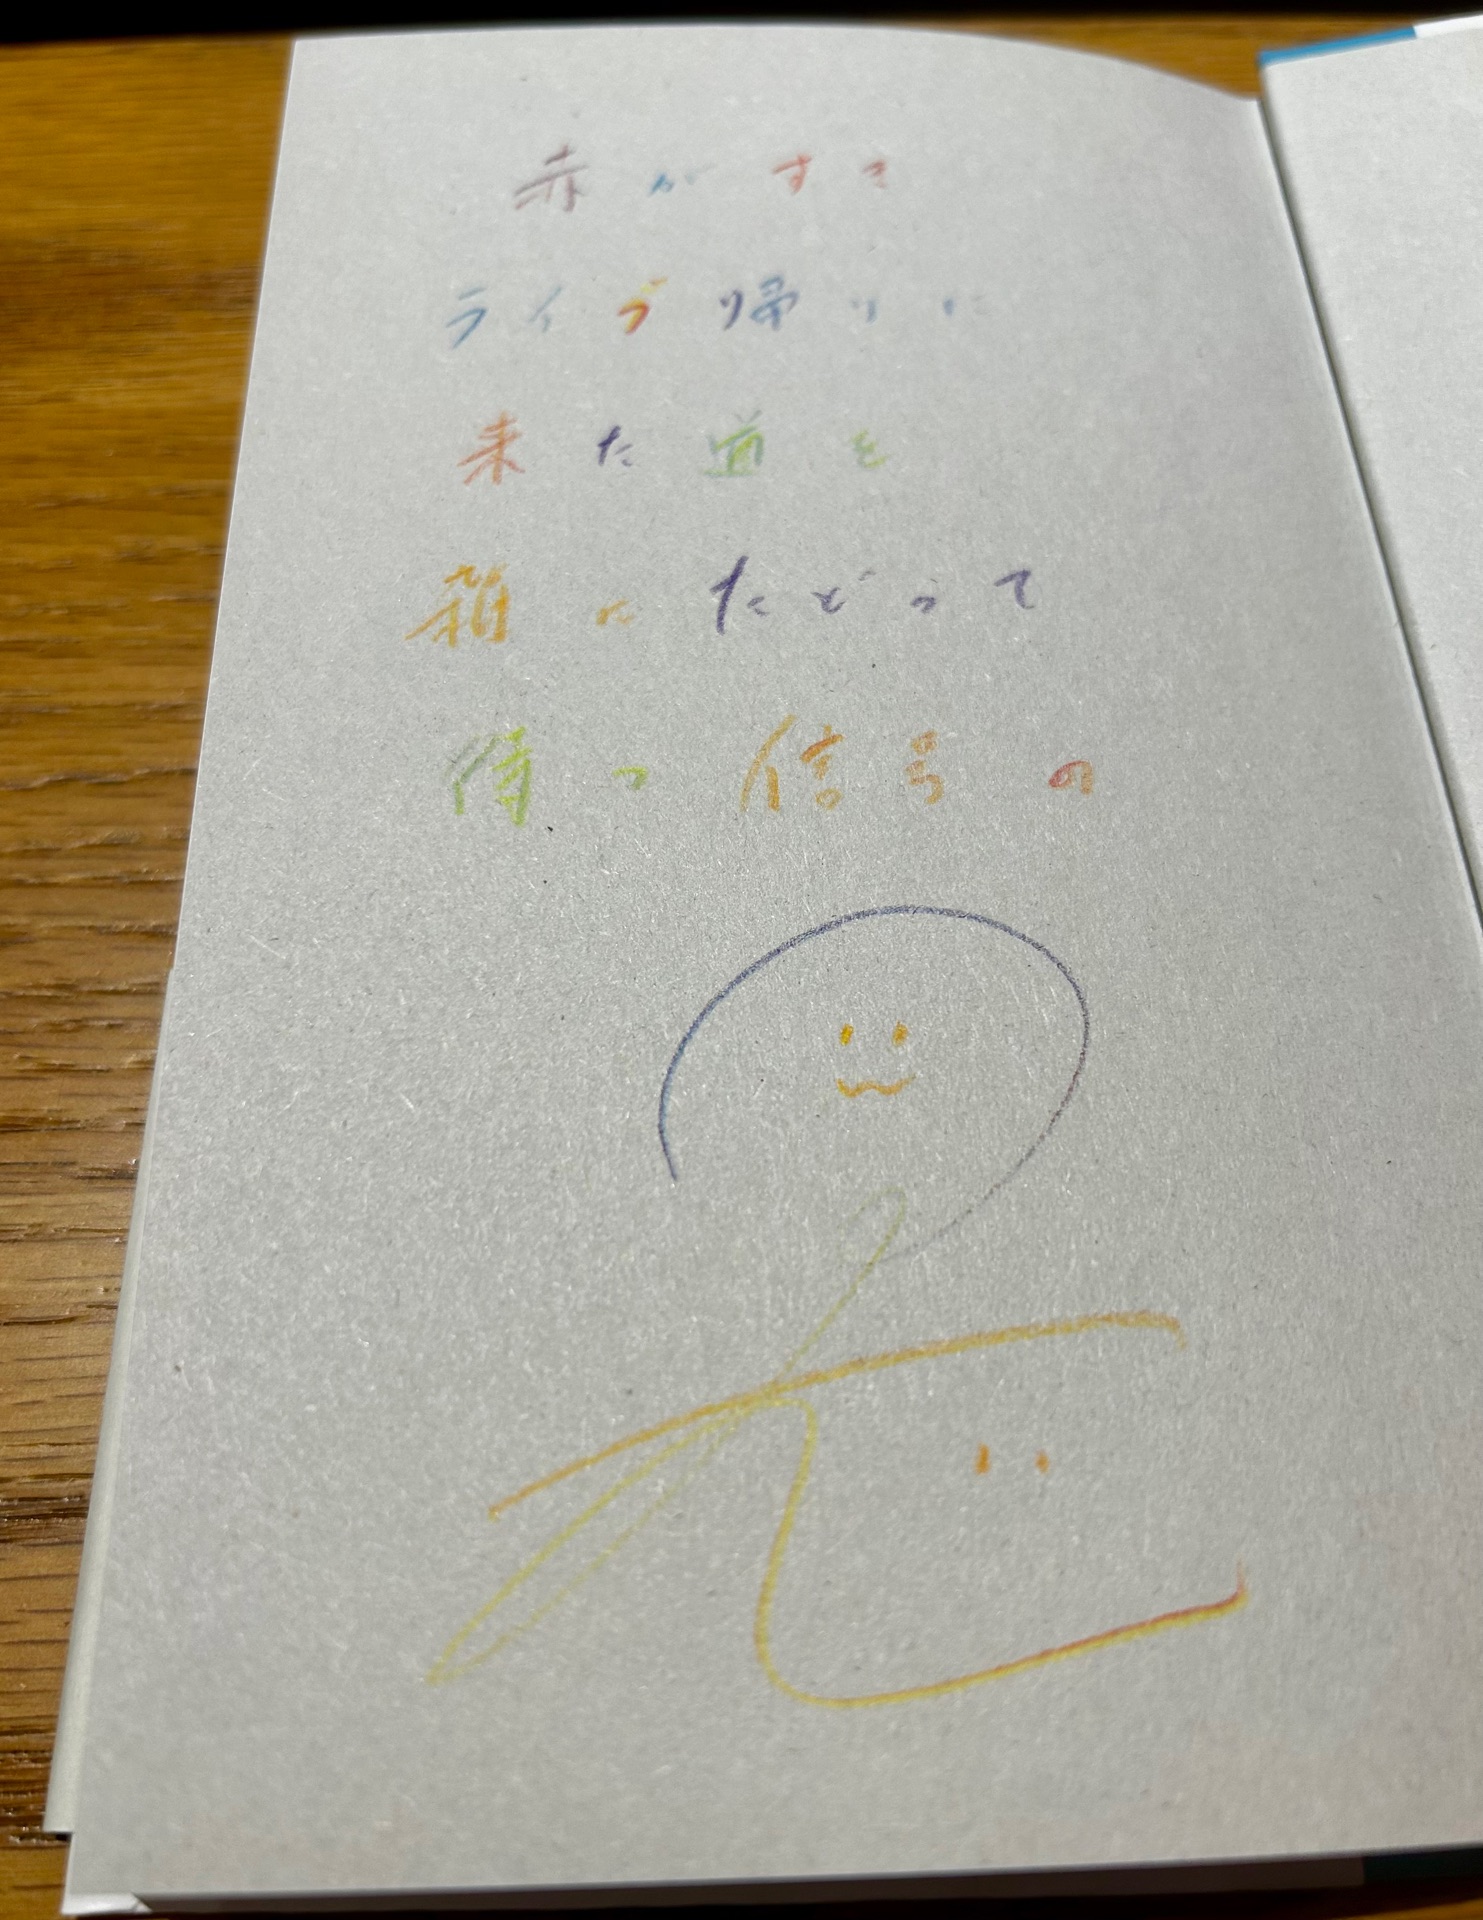 赤がすき
ライブ帰りに
来た道を
雑にたどって
待つ信号の